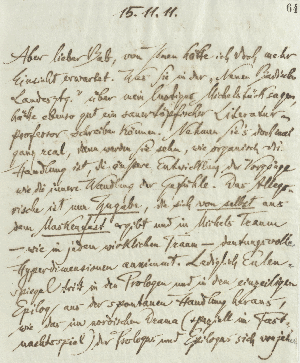 64
15.11.11.
Aber lieber Bab, von Ihnen hätte ich doch mehr
Einsicht erwartet. Was Sie in der „Neuen Badischen
Landesztg." über mein lustiges Michelstück sagen,
hätte ebenso gut ein sauertöpfischer Literatur-
professor schreiben können. Nehmen Sie's doch mal
ganz real, dann werden Sie sehn, wie organisch die
Handlung ist, die äussere Entwicklung der Vorgänge
wie die innere Wandlung der Gefühle. Das Allego-
rische ist nur Zugabe, die sich von selbst aus
dem Maskenfest ergibt und in Michels Traum
— wie in jedem wirklichen Traum — deutungsvolle
Hyperdimensionen annimmt. Lediglich Eulen-
spiegel tritt in den Prologen und in dem einzeiligen
Epilog aus der spontanen Handlung heraus,
wie das im nordischen Drama (speziell im Fast-
nachtsspiel) der Prologus und Epilogus sich